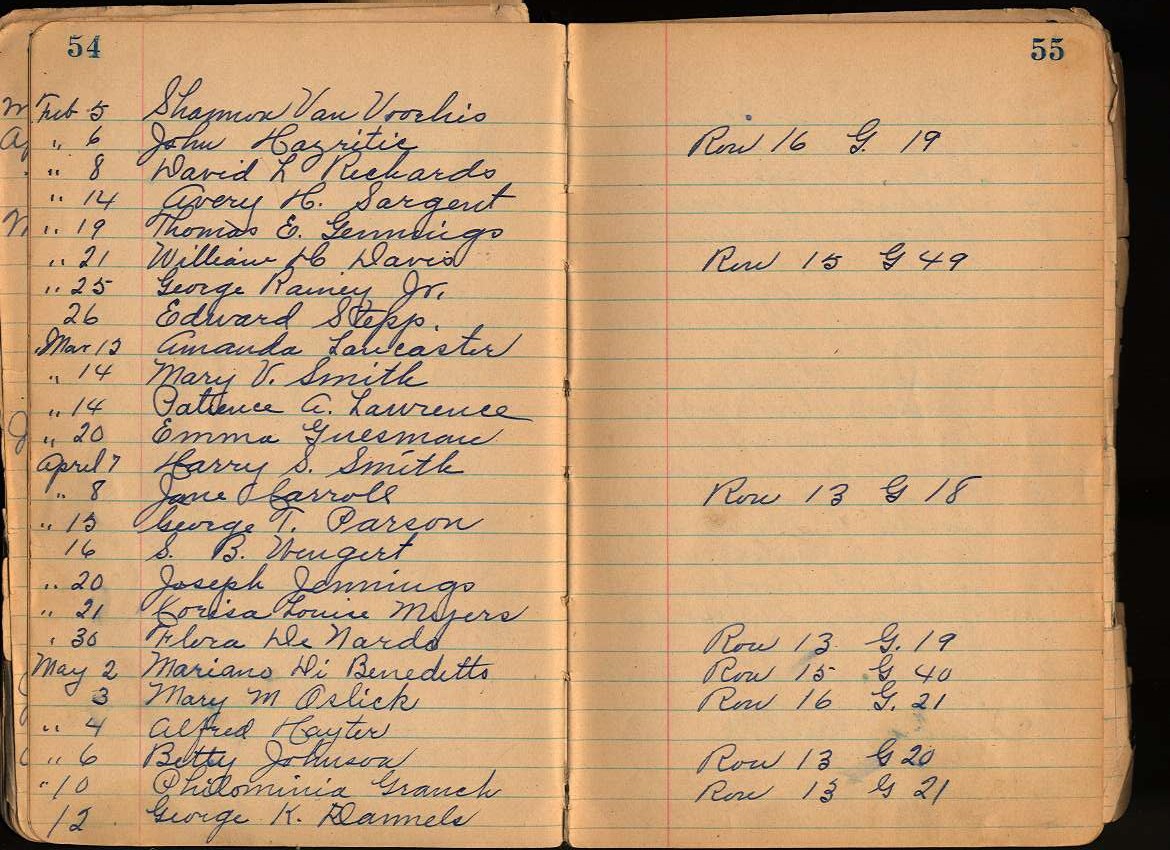 54
55
Feb 5 Shannon Van Voorhis
" 6 John Hazritic Row 16 G. 19
" 8 David L Richards
" 14 Avery H. Sargent
" 19 Thomas E. Gennings
" 21 William H Davis Row 15 G 49
" 25 George Rainey Jr.
26 Edward Stepp.
Mar 13 Amanda Lancaster
" 14 Mary V. Smith
" 14 Patience A. Lawrence
" 20 Emma Guesman
April 7 Harry S. Smith
" 8 Jane Carroll Row 13 G 18
" 15 George T. Parson
16 S. B. Wengert
" 20 Joseph Jennings
" 21 Corissa Louise Myers
" 30 Flora De Nardo Row 13 G. 19
May 2 Mariano Di Benedetto Row 15 G 40
3 Mary M Oslick Row 16 G. 21
" 4 Alfred Hayter
" 6 Betty Johnson Row 13 G 20
" 10 Philominia Granch Row 13 G 21
12 George K. Dannels